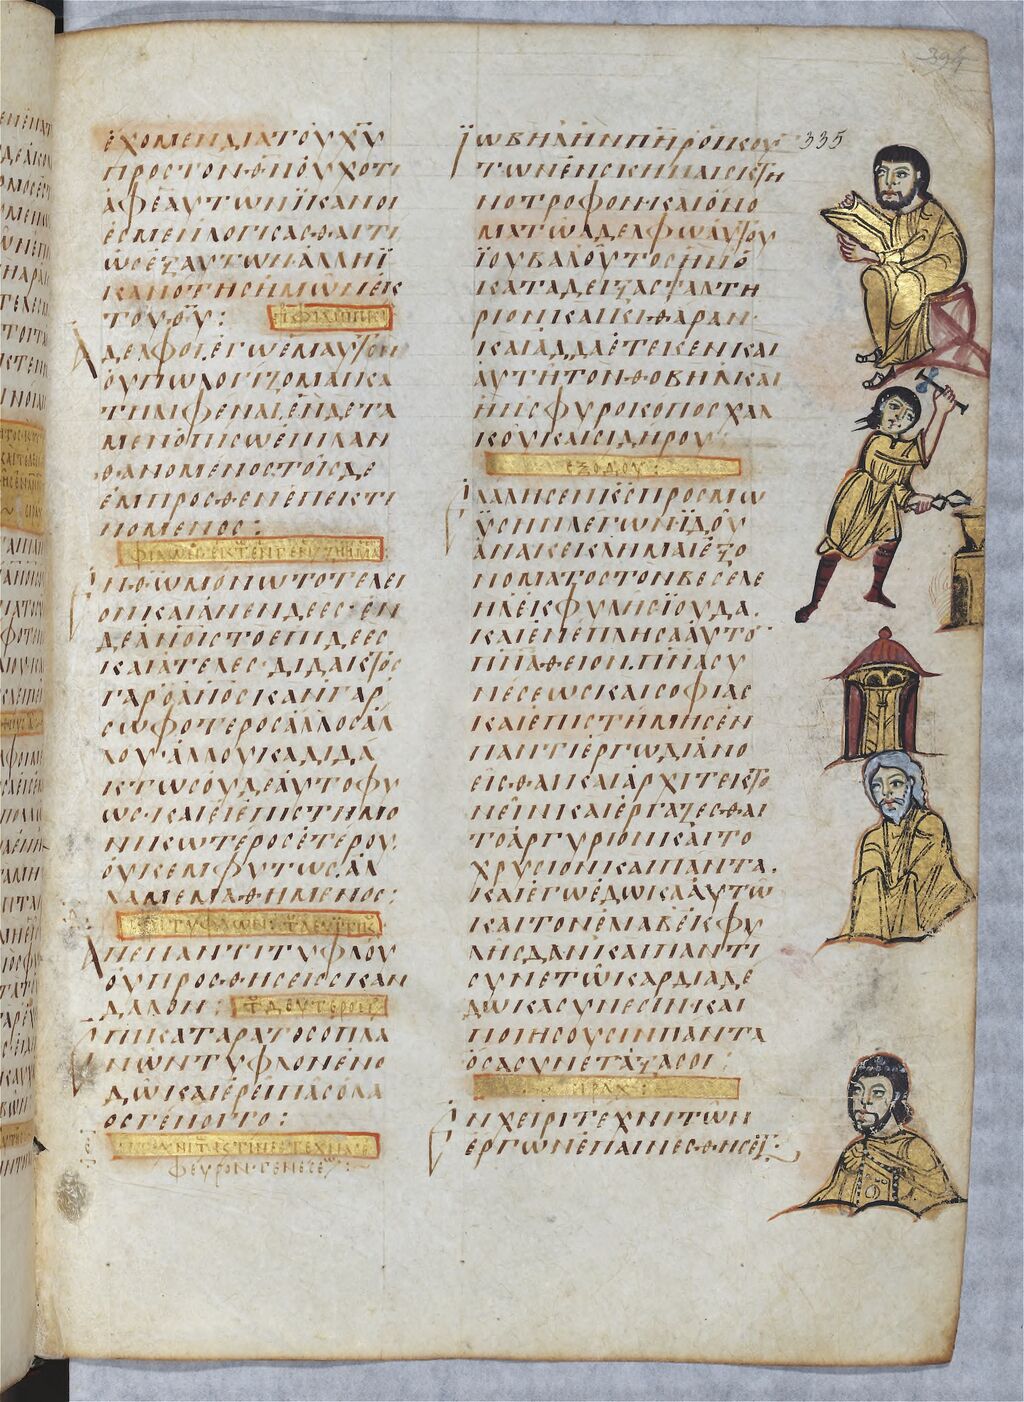 ἔχομεν διὰ τοῦ χ̅υ̅
πρὸς τὸν θ̅ν̅ οὐχ ὅτι
ἀφ ἑαυτῶν ἱκανοί
ἐσμεν λογίσασθαί τι
ὡς ἐξ αυτῶν ἀλλ ἡ ἱ
κανότης ἡμῶν ἐκ
τοῦ θ̅υ̅:
δελφοὶ ἐγὼ ἐμαυτὸν
οὔπω λογίζομαι κα
τηλιφέναι ἓν δὲ τὰ
μὲν ὀπίσω ἐπιλαν
θανόμενος τοῖς δὲ
ἔμπροσθεν ἐπεκτι
νόμενος:
ον καὶ ἀνενδεές· ἐν
δὲ ἀν̅οις τὸ ἐπιδεὲς
καὶ ἀτελές· διδακτὸς
γὰρ ὁ ἄν̅ος κἂν γὰρ
σωφότερος ἄλλος ἄλ
λου ἀλλ οὐκ ἀδιδά
κτως οὐδὲ αὐτοφυ
ῶς· καὶ εἰ ἐπιστημο
νικώτερος ἕτερου
οὐκ ἐμφύτως ἀλ
λὰ μεμαθημένος:
πέναντι τυφλοῦ
οὐ προσθήσεις σκάν
δαλον: τ δευτερο
πικατάρατος ὁ πλα
νῶν τυφλὸν ἐν ὁ
δῷ καὶ ἐρεῖ πᾶς ὁ λα
ὸς γένοιτο:
335
ϊωβὴλ ἦν π̅η̅ρ οἰκού
των ἐν σκηναῖς κτη
νοτρόφον· καὶ ὄνο
μα τῷ ἀδελφῷ αὐτοῦ
ϊουβάλ οὗτος ἦν ὁ
καταδείξας ψαλτή
ριον καὶ κιθάραν·
καὶ ἀδδὰ ἔτεκεν καὶ
αὐτὴ τὸν θοβὴλ καὶ
ἦν σφυροκόπος χαλ
κοῦ καὶ σιδήρου
ἐξόδου:
λάλησεν κ̅ς̅ πρὸς μω
ϋσῆν λέγων ἰδοὺ
ἀνακέκλημαι ἐξ ὀ
νόματος τὸν βεσελε
ὴλ ἐκ φυλῆς ἰούδα.
καὶ ἐνέπλησα αὐτὸ
π̅ν̅α θεῖον. π̅ν̅α συ
νέσεως καὶ σοφίας
καὶ ἐπιστήμης ἐν
παντὶ ἔργῳ διανο
εῖσθαι καὶ ἀρχιτεκτο
νεῖν καὶ ἐργάζεσθαι
τὸ ἀργύριον καὶ τὸ
χρυσίον καὶ πάντα.
καὶ ἐγὼ ἔδωκα αὐτῷ
καὶ τὸν ἐλιὰβ ἐκ φυ
λῆς δὰν καὶ παντὶ
συνετῷ καρδίᾳ δέ
δωκα σύνεσιν· καὶ
ποιήσουσιν πάντα
ὅσα συνέταξά σοι:
ν χειρὶ τεχνιτῶν
ἔργων ἐπαινεσθήσετ